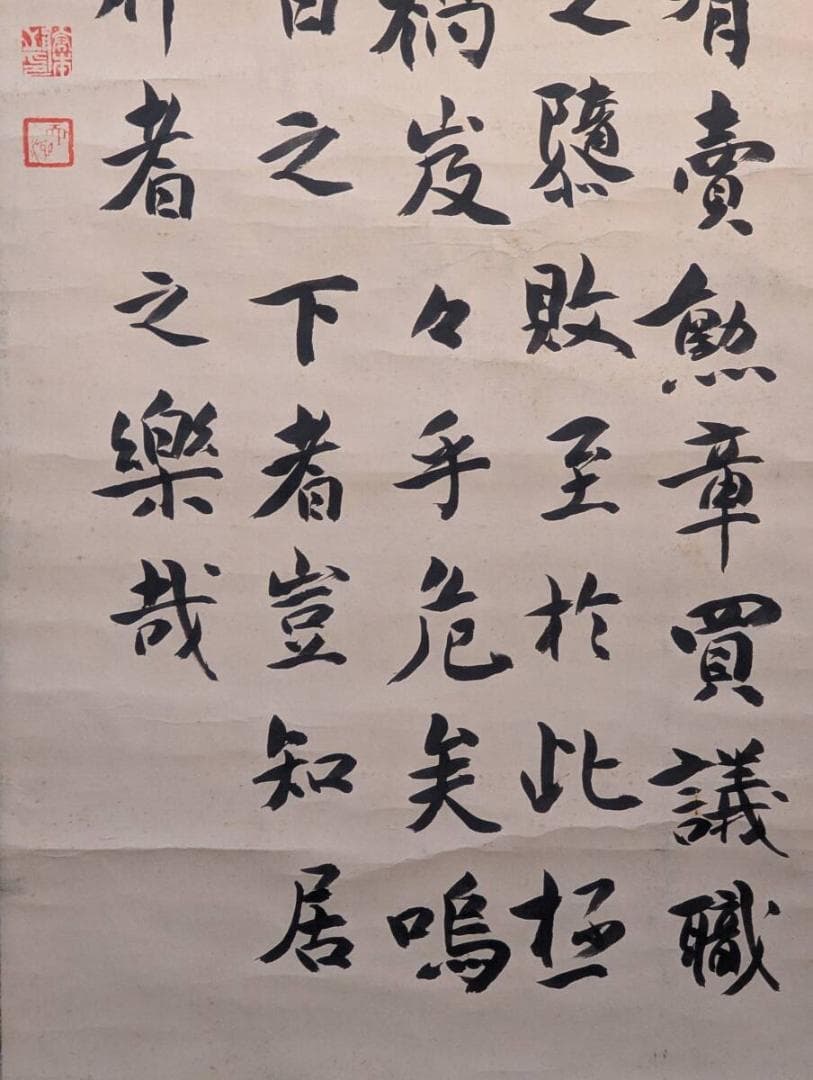 有賣勲章買議職
之隳敗至於此極
岌々乎危矣嗚
之下者豈知居
者之樂哉